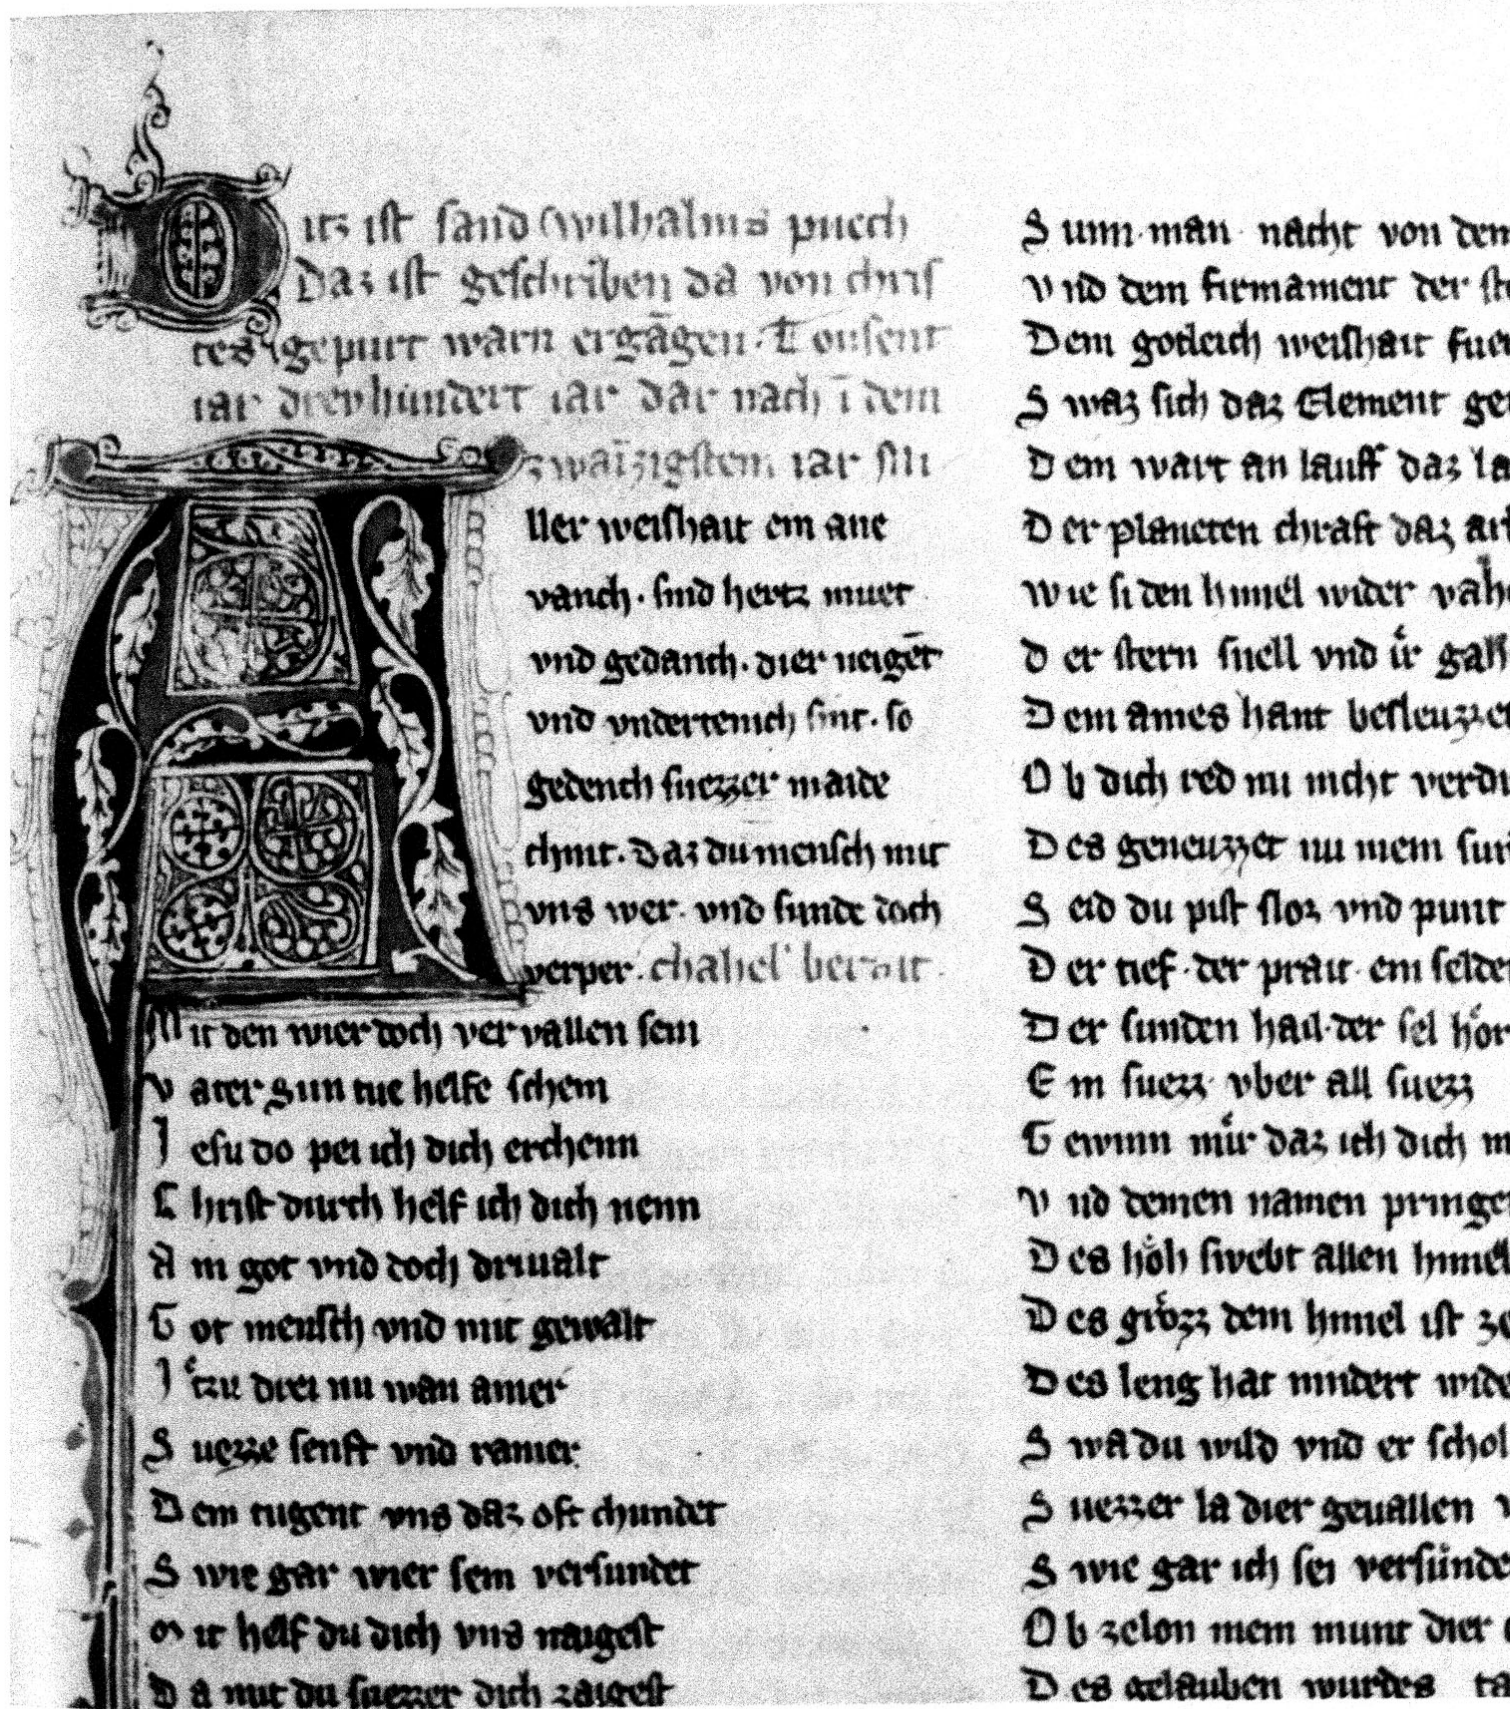 Ditz ist sand Wilhalms puech
Daz ist geschriben da von chris
tes gepurt warn ergāgen. Tousent
iar drevhundert iar dar nach ī dem
zwaīzigstem iar
Aller weishait ein ane
vanch. sind hertz muet
vnd gedanch. dier neigēt
vnd vndertenich sint. so
gedench suezzer maide
chint. Daz du mensch mit
vns wer. vnd sunde doch
verper.
Mit den wier doch vervallen sein
Vater Sun tue helfe schein
Jesu do pei ich dich erchenn
Christ durch helf ich dich nenn
Ain got vnd doch drivalt
Got mensch vnd mit gewalt
Jͤtzu drei nu wan ainer
Suezze senft vnd rainer
Dein tugent vns daz oft chundet
Swie gar wier sein versundet
Mit helf du dich vns naigest
Da mit du suezzer dich zaigest
Sunn man nacht von den
Vnd dem firmament der
Dem gotleich weishait
Swaz sich daz Element
Dem wart an lauff daz
Der planeten chraft daz
Wie si den himel wider
Der stern snell vnd iͤr
Dem ames hant besleuzzet
Ob dich red nu nicht
Des geneuzzet nu mein
Seid du pist sloz vnd punt
Der tief. der prait. ein
Der sunden hail. der sel
Ein suezz vber all suezz
Gewinn miͤr daz ich dich
Vnd deinen namen
Des hoͤh swebt allen
Des groͤzz dem himel ist
Des leng hat nindert
Swa du wild vnd er schol
Suezzer la dier gevallen
Swie gar ich sei
Ob zelon mein munt dier
Des gelauben wurdes